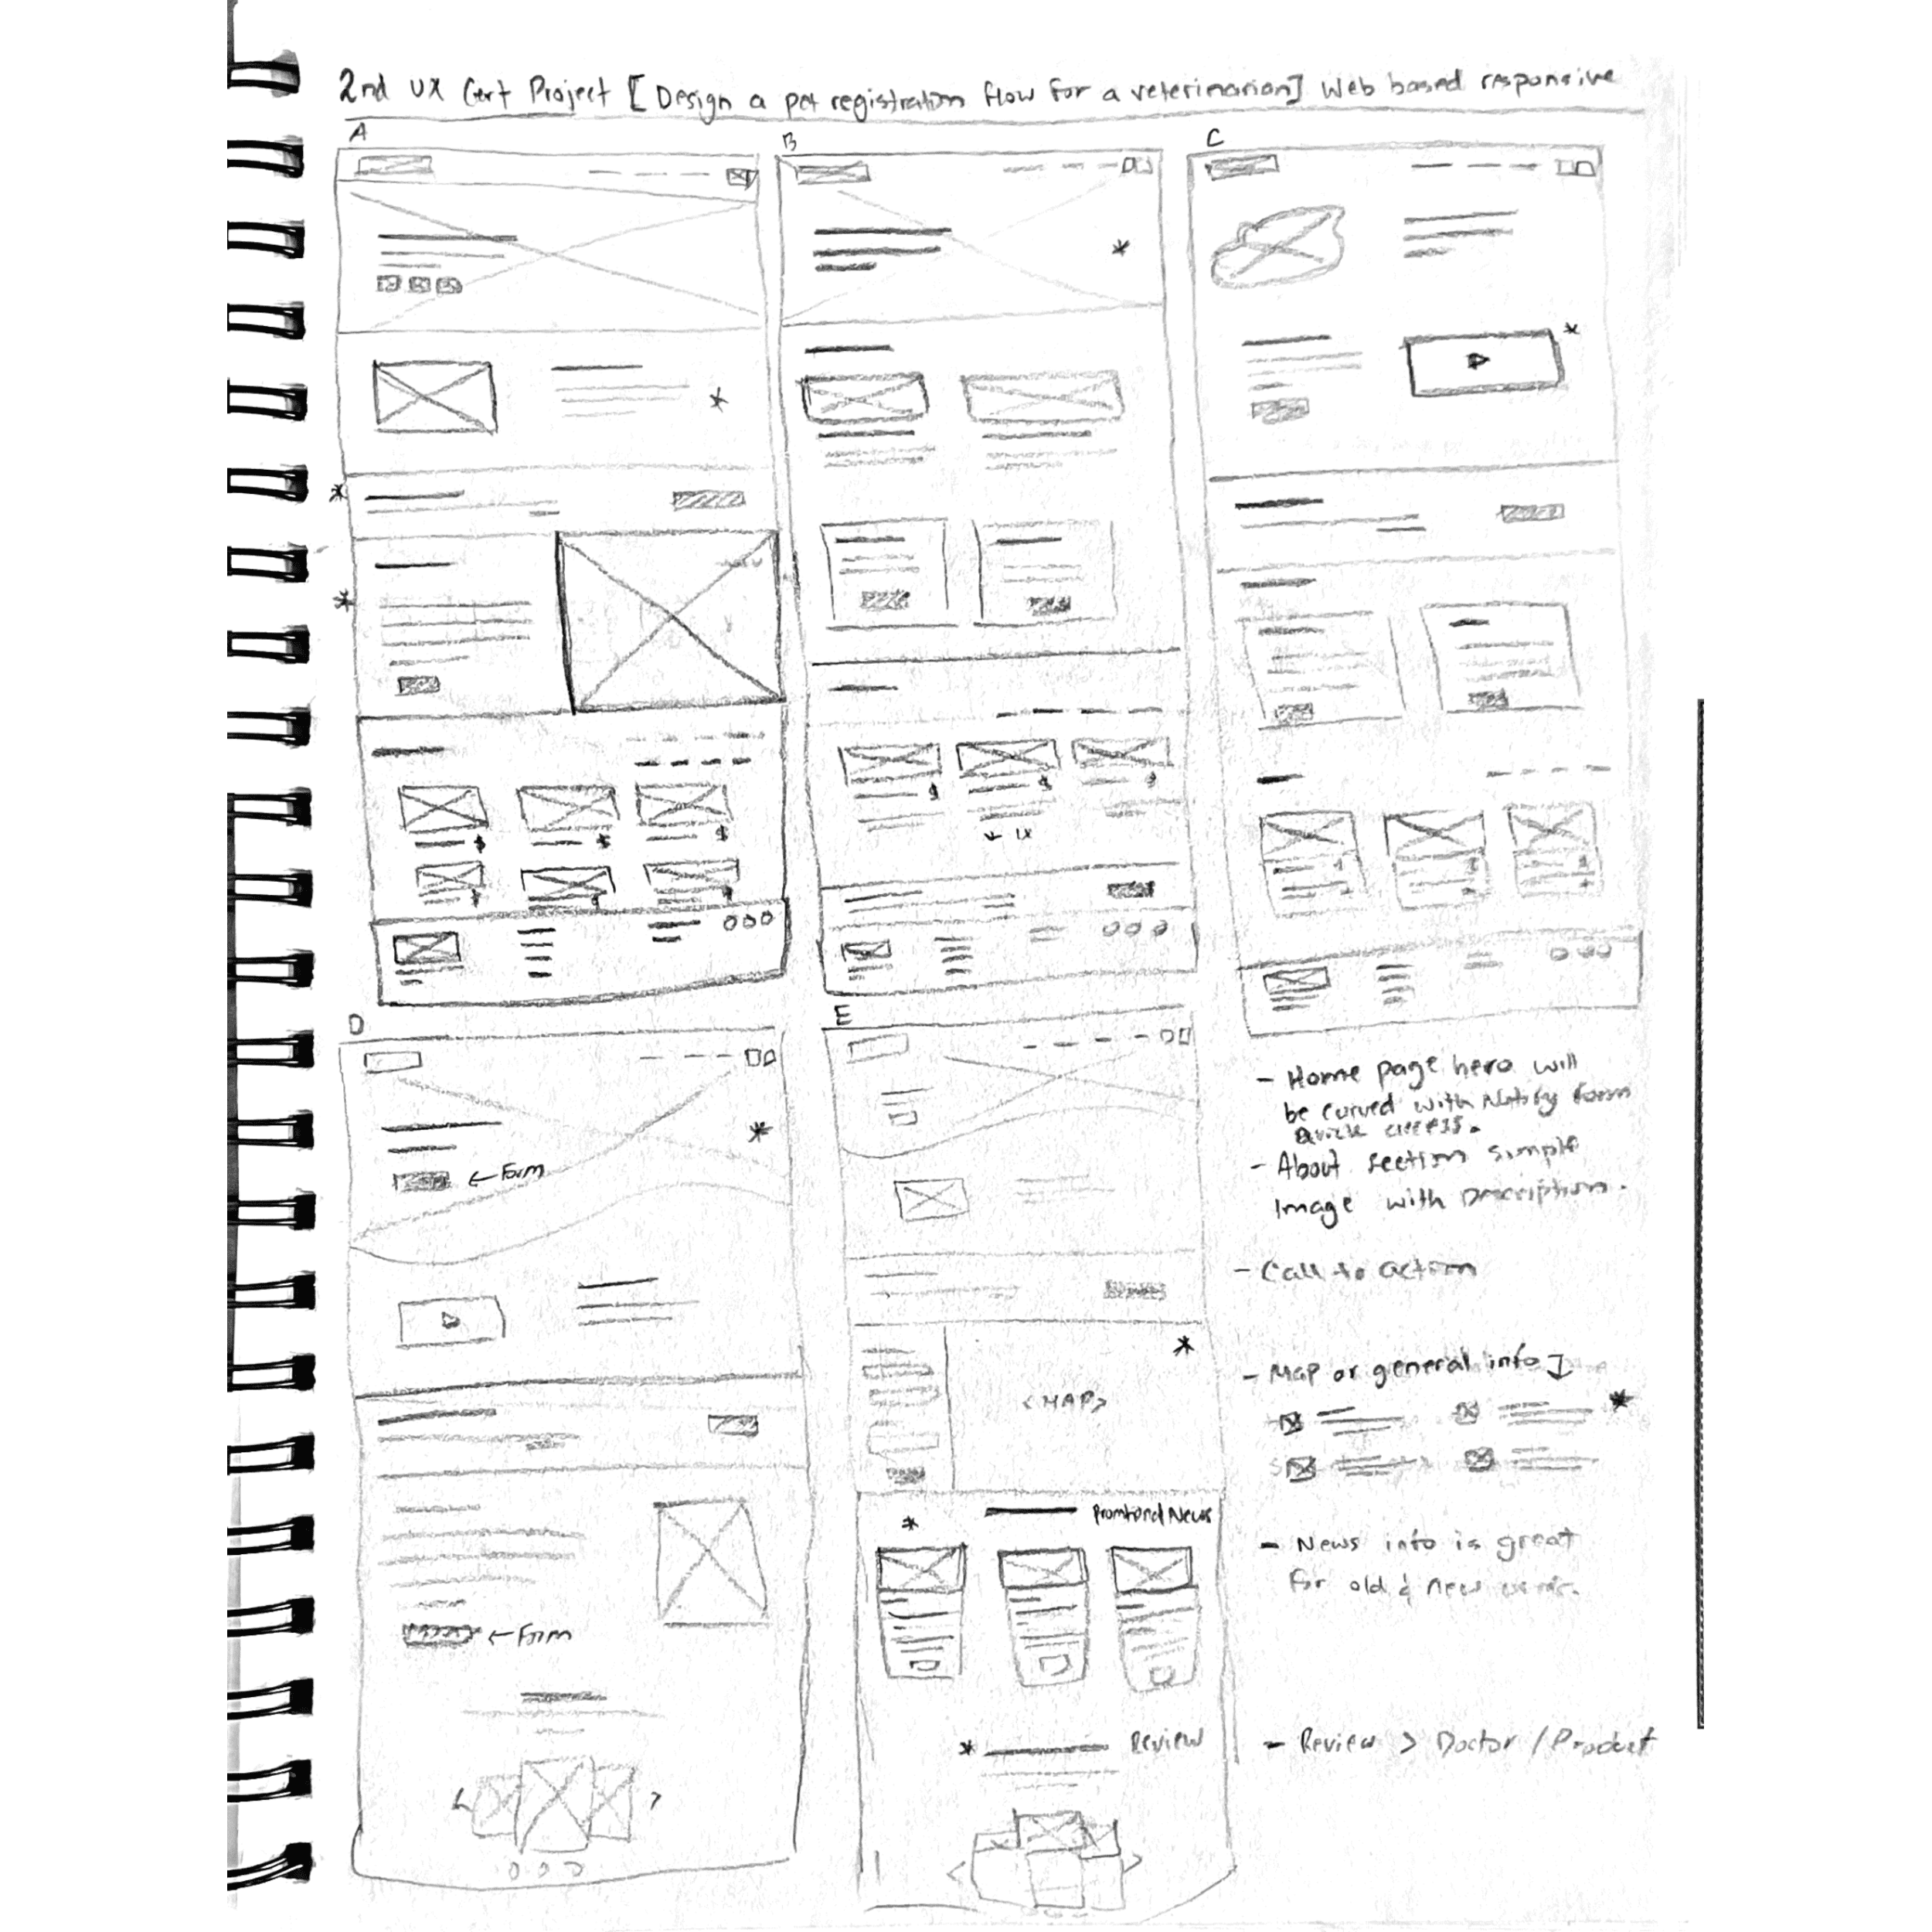 2nd UX Cert Project [Design a pet registration flow for a veterinarian] Web based responsive
A
B
C
D
E
← Form
← Form
<MAP>
Promtional News
Review
- Home page hero will
be curved with Notify form
access.
- About section simple
Image with Description.
- Call to action
- Map or general info]
- News info is great
for old & new
- Review > Doctor / Product